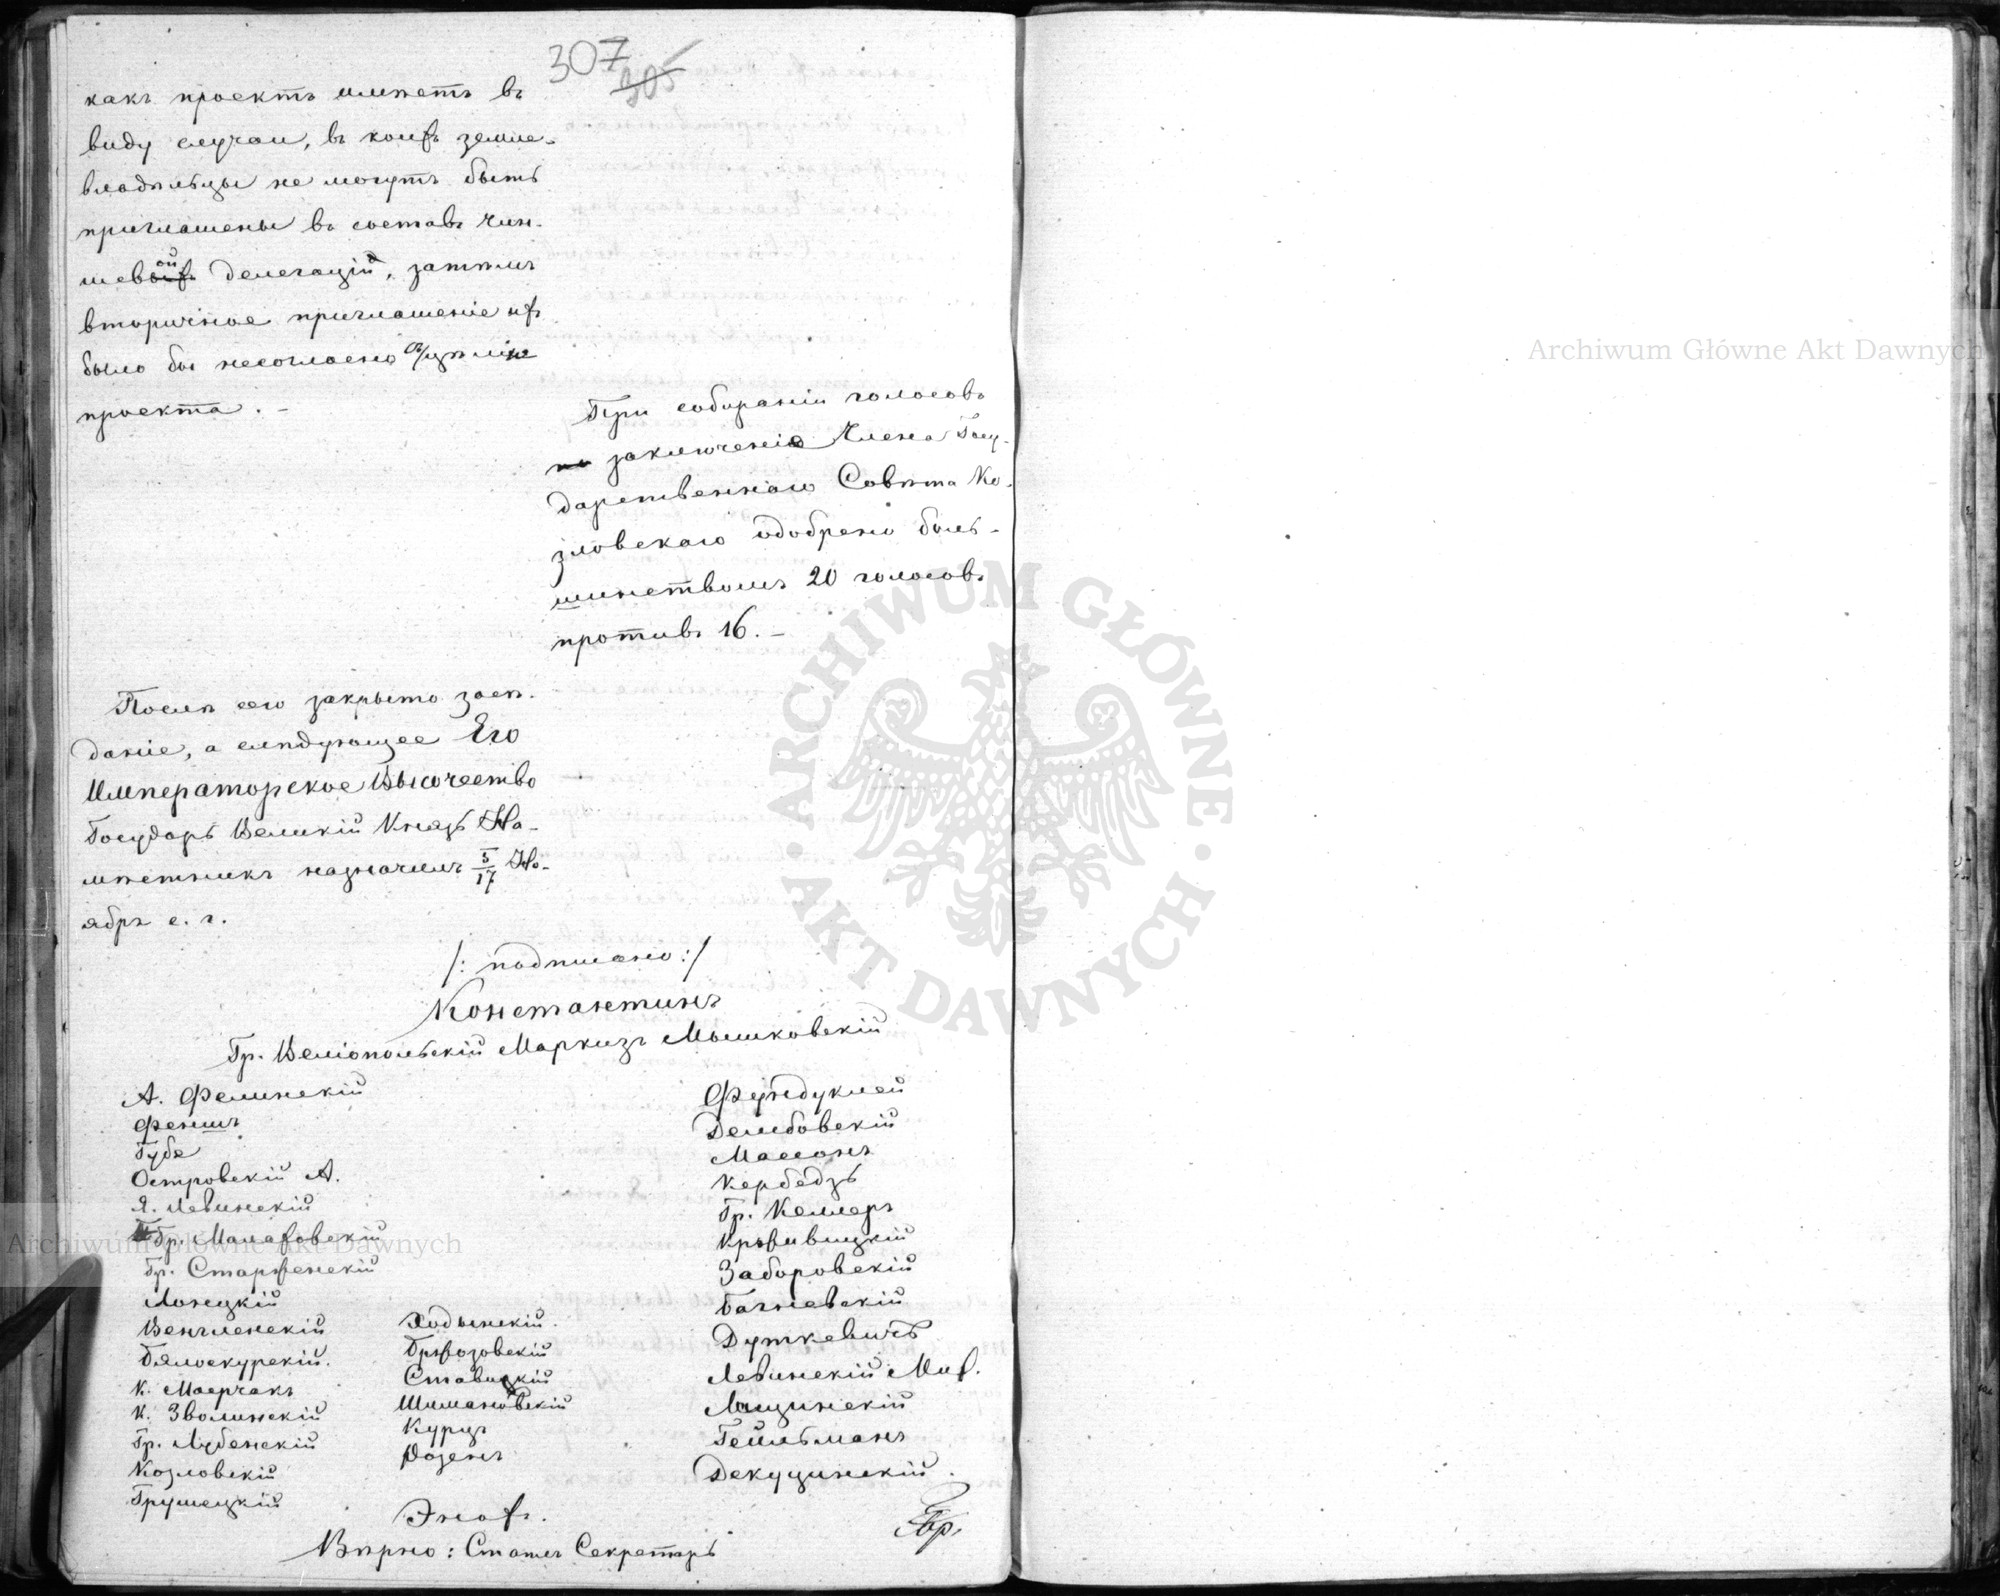 307
305
какъ проектъ имѣетъ въ
виду случаи, въ коихъ земле-
владѣльцы не могутъ быть
приглашены въ составъ чин-
шевой делегацій, затѣмъ
вторичное приглашеніе ихъ
было бы несогласно съ цѣлію
проекта. –
При собираніи голосовъ
заключеніе Члена Госу-
дарственнаго Совѣта Ко-
зловскаго одобрено боль-
шинствомъ 20 голосовъ
противъ 16. –
Послѣ сего закрыто засѣ-
даніе, а слѣдующее Его
Императорское Высочество
Государь Великій Князь На-
мѣстникъ назначилъ 5/17 Но-
ября с. г.
/: подписано :/
Константинъ
Гр. Велiопольскій Маркизъ Мышковскій
А. Фелинскій
Феншъ
Губе
Островскій А.
Я. Левинскій
Гр. Малаховскій
Гр. Старженскій
Лонецкій
Венгленскій
Бялоскурскій.
К. Маерчакъ
К. Зволинскій
Гр. Лубенскій
Козловскій
Грушецкій
Ходынскій.
Бржозовскій
Ставицкій
Шимановскій
Курцъ
Розенъ
Энохъ.
Фундуклей
Дембовскій
Массонъ
Кербедзъ
Гр. Келлеръ
Крживицкій
Заборовскій
Багневскій
Дуткевичъ
Левинскій Мих.
Лищинскій
Гейльманъ
Декуцинскій.
Вѣрно: Статсъ Секретарь
Archiwum Główne Akt Dawnych
Archiwum Główne Akt Dawnych
ARCHIWUM GŁÓWNE • AKT DAWNYCH •